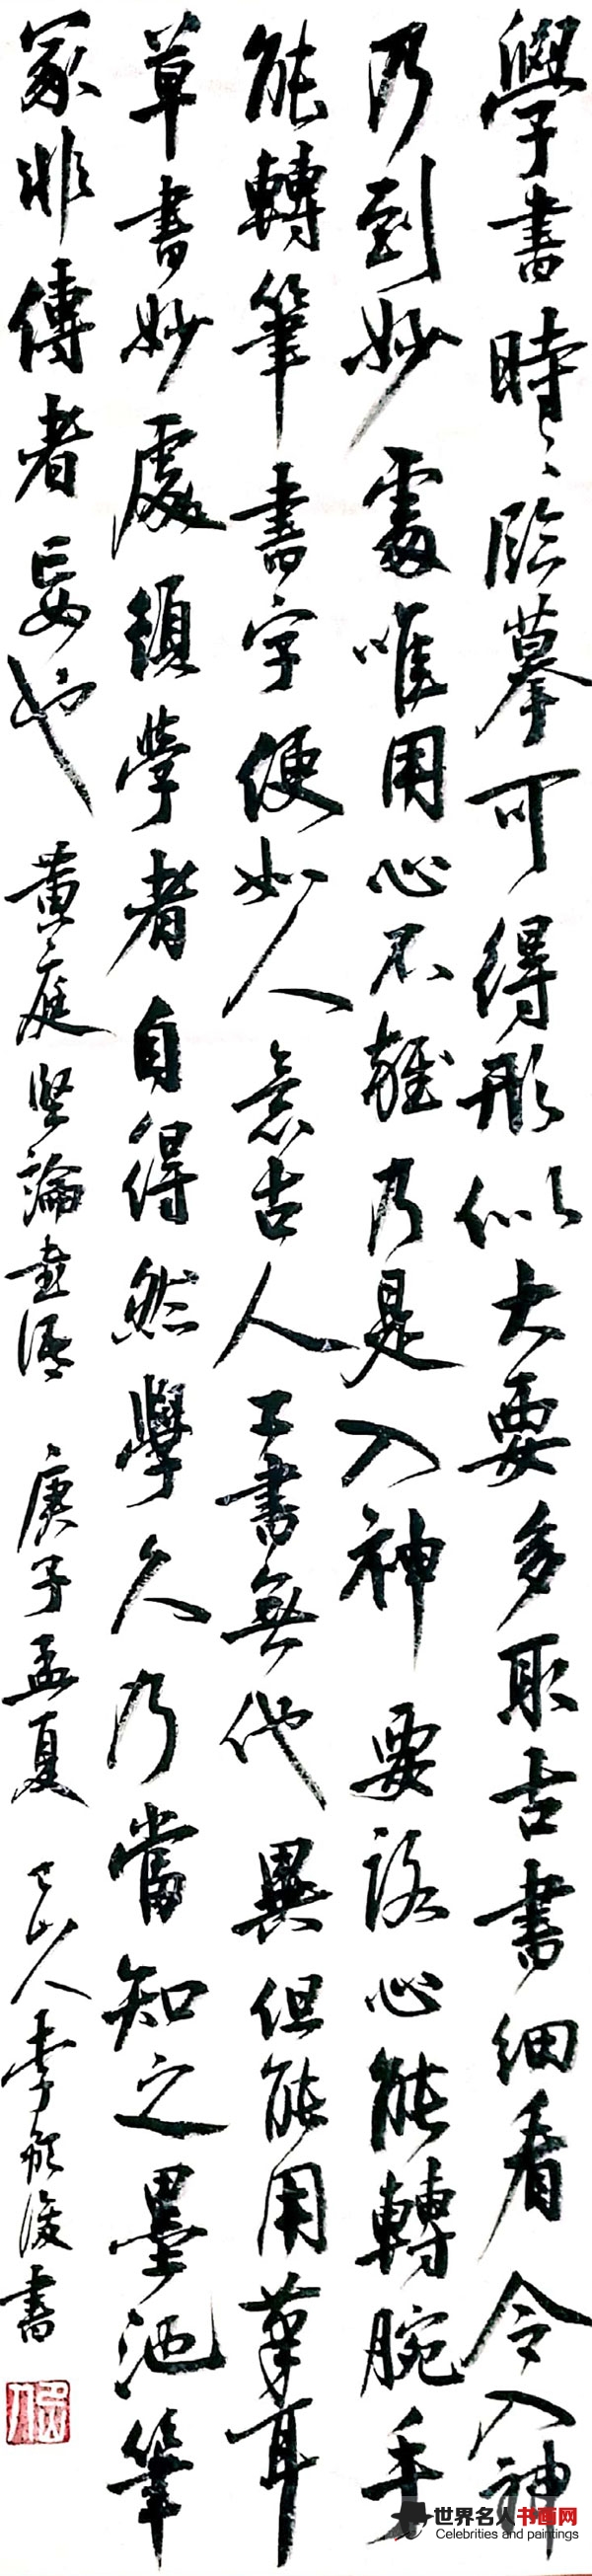 學書時〻臨摹可得形似大要多取古書細看令入神
乃到妙處唯用心不雜乃是入神要路心能轉腕手
能轉筆書字便如人意古人工書無他異但能用筆耳
草書妙處須學者自得然學久乃當知之墨池筆
冢非傳者妄也 黄庭坚論書語 庚子孟夏 山人李 書
世界名人书画网
Celebrities and paintings